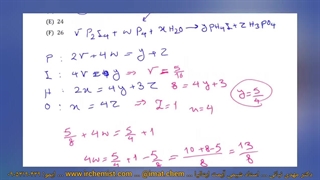 (E) 24
(F) 26
v P₂I₄ + w P₄ + x H₂O → y PH₄I + z H₃PO₄
P : 2v + 4w = y + z
I : 4v = y ⇒ v = 5/16
H : 2x = 4y + 3z 8 = 4y + 3 y = 5/4
O : x = 4z ⇒ z = 1 x = 4
5/8 + 4w = 5/4 + 1
4w = 5/4 + 1 - 5/8 = (10 + 8 - 5)/8 = 13/8
www.irchemist.com